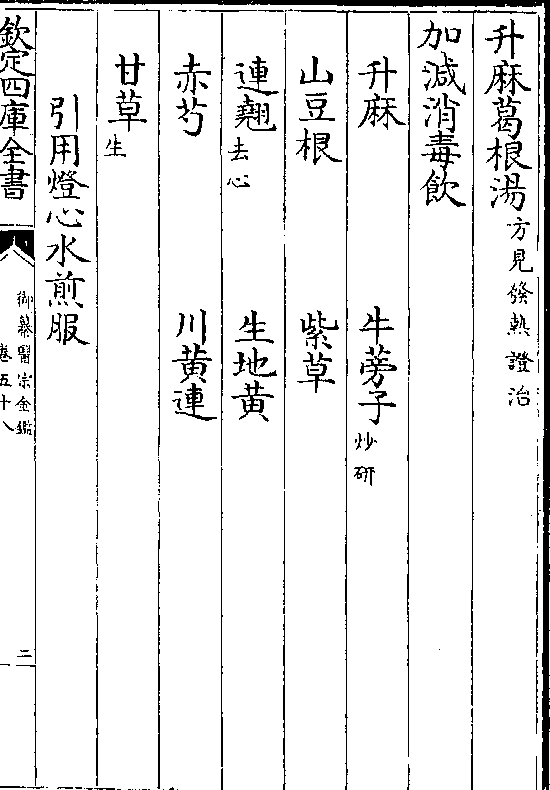 升麻葛根湯方見發熱證治
加減消毒飲
升麻 牛蒡子炒研
山豆根 紫草
連翹去心 生地黄
赤芍 川黄連
甘草生
引用燈心水煎服
欽定四庫全書 御纂醫宗金鑑 卷五十八 三